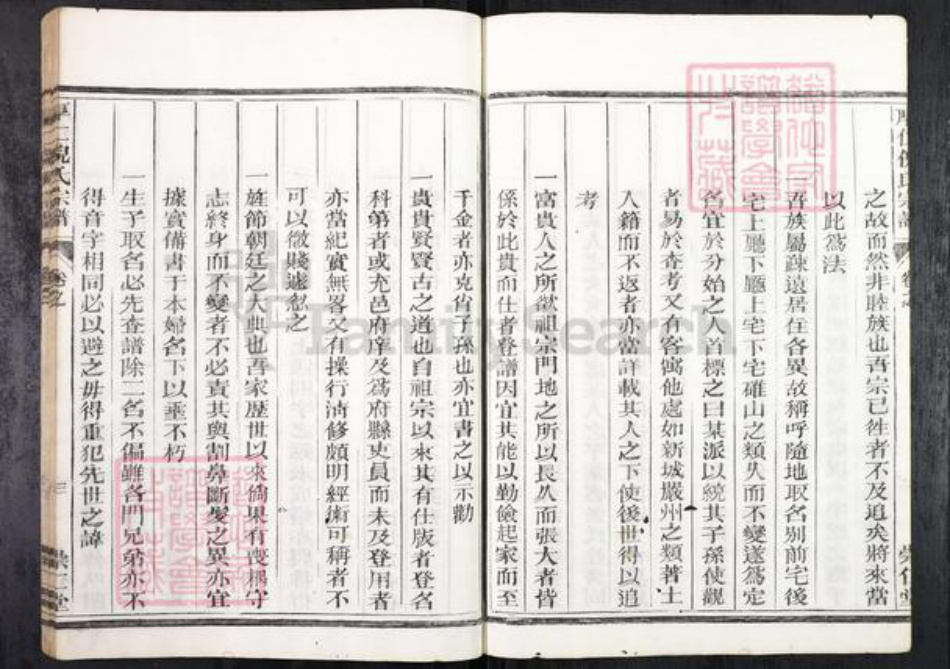 之故而然非睦族也吾宗已徃者不及追矣將來當
以此爲法
一吾族屬疎遠居住各異故稱呼隨地取名别前宅後
宅上廳下廳上宅下宅碓山之類久而不變遂爲定
名宜於分始之人首標之曰某派以統其子孫使觀
者易於查考又有客寓他處如新城嚴州之類著土
人籍而不返者亦當詳載其人之下使後世得以追
考
一富貴人之所欲祖宗門地之所以長久而張大者皆
係於此貴而仕者登譜因宜其能以勤儉起家而至
千金者亦克省子孫也亦宜書之以示勸
一貴貴賢賢古之道也自祖宗以來其有仕版者登名
科第者或充邑府庠及爲府縣吏員而未及登用者
亦當紀實無畧又有操行淸修頗明經術可稱者不
可以微賤遽忽之
一旌節朝廷之大典也吾家歷世以來倘果有喪耦守
志終身而不變者不必責其與割鼻斷髪之異亦宜
據實備書于本婦名下以垂不朽
一生子取名必先查譜除二名不偏難各門兄弟亦不
得音字相同必以避之毋得重犯先世之諱
倪氏宗譜
卷之
三
FamilySearch